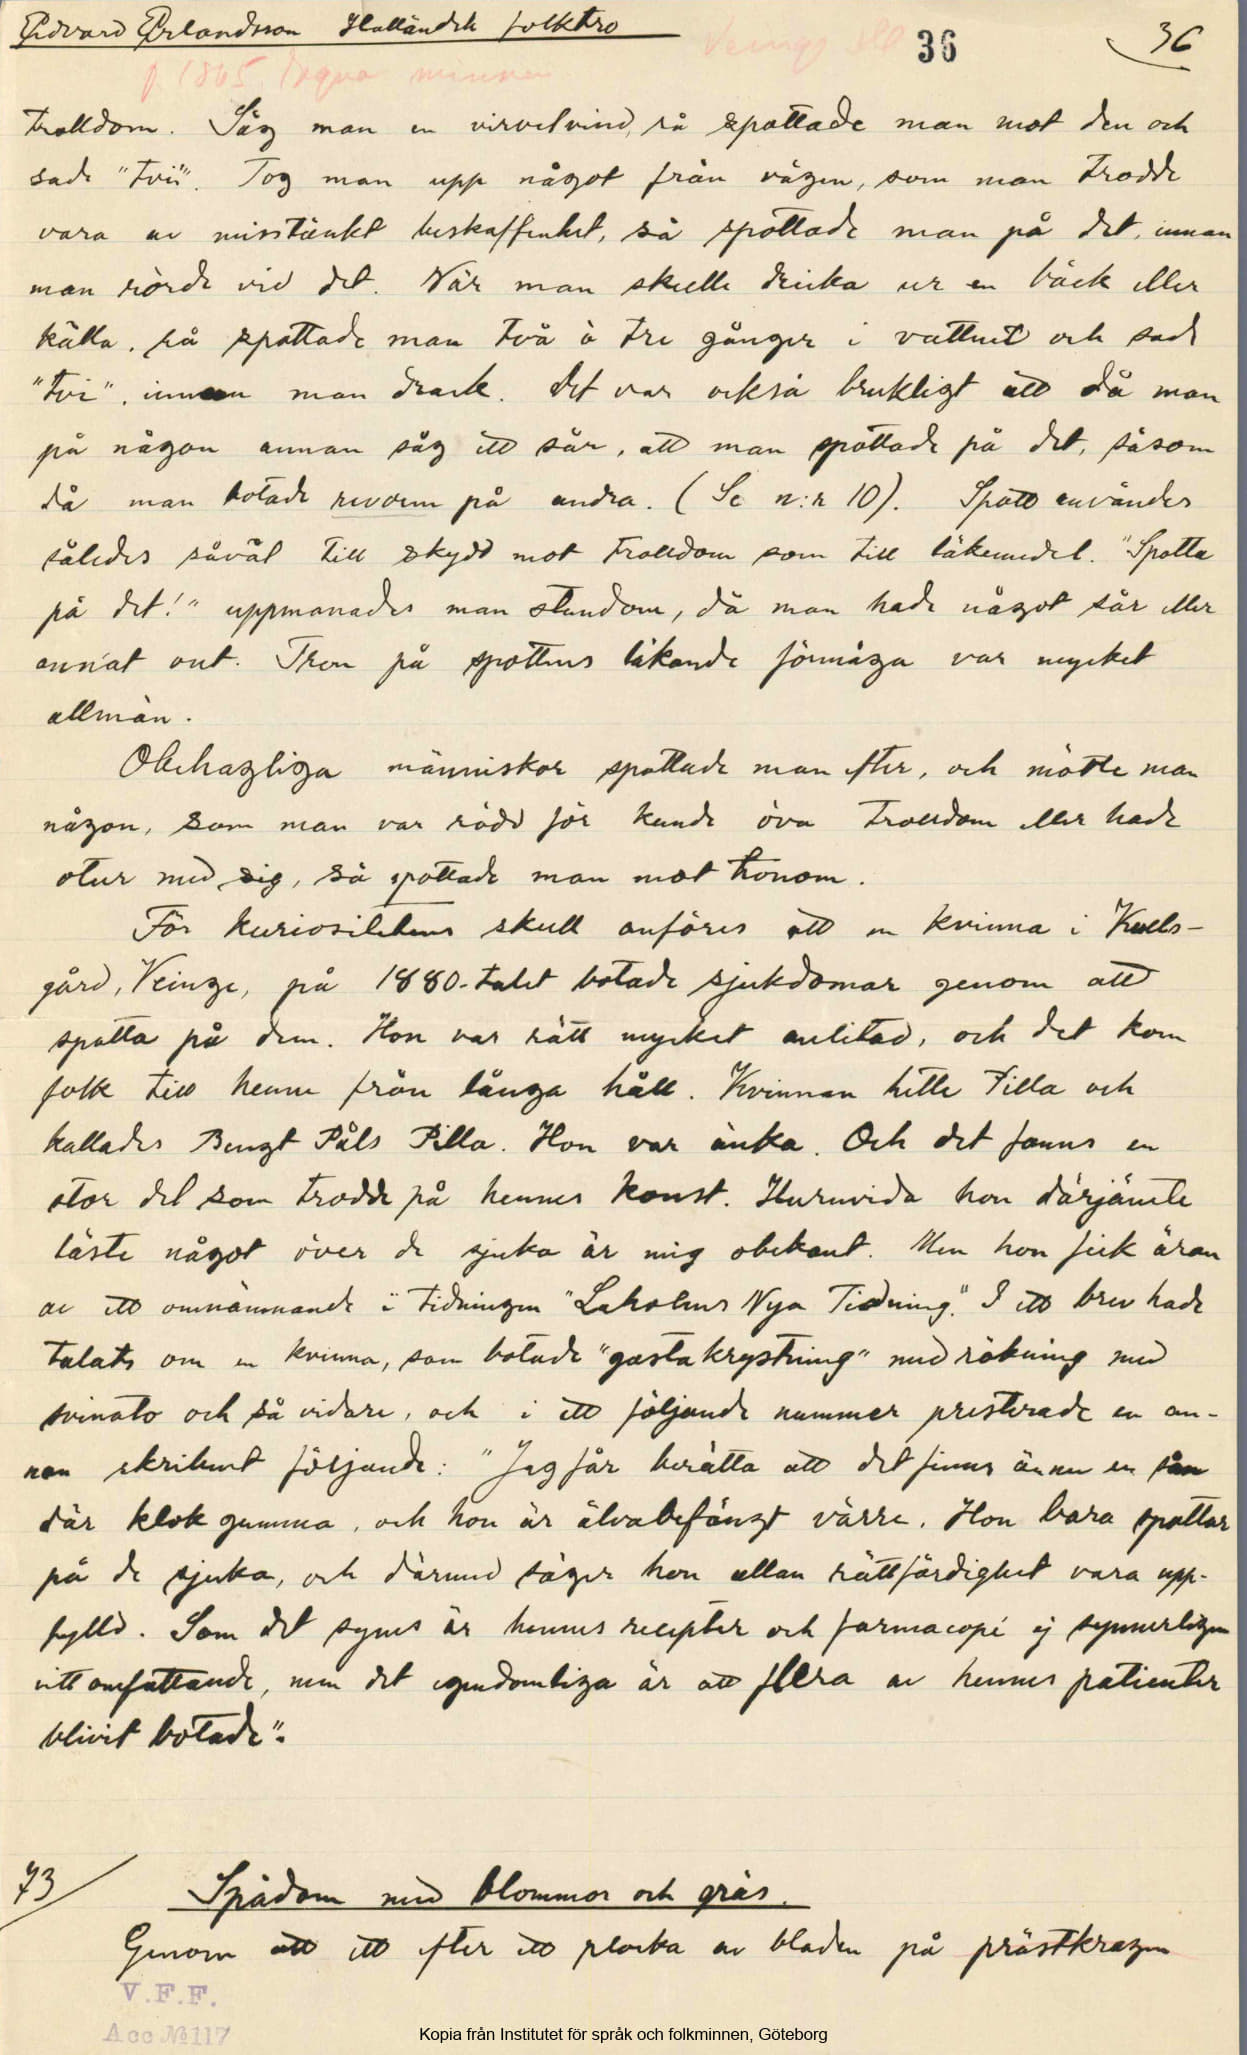 Edvard Erlandsson Halländsk folktro
Veinge
36
36
f. 1865. Egna minnen
trolldom. Såg man en virvelvind, så spottade man mot den och
sade "tvi". Tog man upp något från vägen, som man trodde
vara av misstänkt beskaffenhet, så spottade man på det, innan
man rörde vid det. När man skulle dricka ur en bäck eller
källa, så spottade man två à tre gånger i vattnet och sade
"tvi", innan man drack. Det var också brukligt att då man
på någon annan såg ett sår, att man spottade på det, såsom
då man botade revorm på andra. (Se n:r 10). Spott användes
således såväl till skydd mot trolldom som till läkemedel. "Spotta
på det!" uppmanades man stundom, då man hade något sår eller
annat ont. Tron på spottens läkande förmåga var mycket
allmän.
Obehagliga människor spottade man efter, och mötte man
någon, som man var rädd för kunde öva trolldom eller hade
otur med sig, så spottade man mot honom.
För kuriositetens skull anföres att en kvinna i
gård, Veinge, på 1880-talet botade sjukdomar genom att
spotta på dem. Hon var rätt mycket anlitad, och det kom
folk till henne från långa håll. Kvinnan hette Pilla och
kallades Bengt Påls Pilla. Hon var änka. Och det fanns en
stor del som trodde på hennes konst. Huruvida hon därjämte
läste något över de sjuka är mig obekant. Men hon fick äran
av ett omnämnande i tidningen "Laholms Nya Tidning". I ett brev hade
talats om en kvinna, som botade "gastakrystning" med rökning med
svinato och så vidare, och i ett följande nummer presterade en an-
nan skribent följande: "Jag får berätta att det finns ännu en sån
där klok gumma, och hon är älvabefängt värre. Hon bara spottar
på de sjuka, och därmed säger hon allan rättfärdighet vara upp-
fylld. Som det synes är hennes recepter och farmacopé ej synnerligen
vitt omfattande, men det egendomliga är att flera av hennes patienter
blivit botade".
73/ Spådom med blommor och gräs.
Genom att ett efter ett plocka av bladen på prästkragen
V.F.F.
Acc №117
Kopia från Institutet för språk och folkminnen, Göteborg